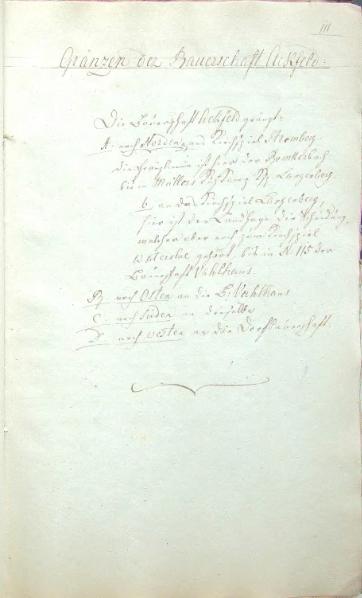 III
Gränzen der Bauerschaft Ackfeld:
Die Bauerschaft Ackfeld gränzt:
A. nach Norden, an Kirchspiel Stromberg
die Gränzlinie ist hier der
bis in Müllers Langenberg
b. an das Kirchspiel Langenberg,
hier ist der Landhage die Scheidung,
welcher aber noch zum Kirchspiel
Wadersloe gehört, bis in N. 115 der
Bauerschaft Vahlhaus.
B. nach Osten an die B: Vahlhaus
C. nach Süden an dieselbe
D. nach Westen an die Dorfbauerschaft